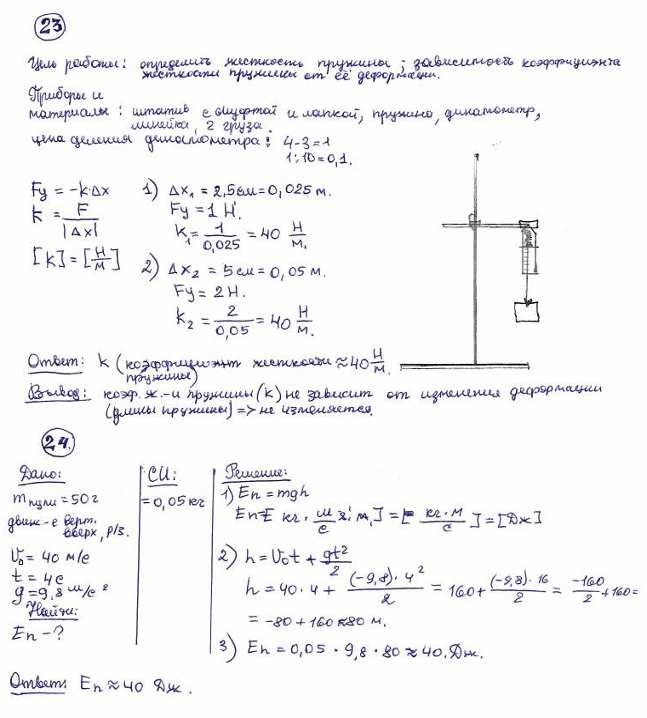 23
Цель работы: определить жесткость пружины; зависимость коэффициента
жесткости пружины от её деформации.
Приборы и
материалы: штатив с муфтой и лапкой, пружина, динамометр,
линейка, 2 груза.
цена деления динамометра: 4-3=1
1:10=0,1.
Fy = -k·Δx
k = F/|Δx|
[k] = [Н/м]
1) Δx₁ = 2,5см = 0,025 м.
Fy = 1 Н.
k₁ = 1/0,025 = 40 Н/м.
2) Δx₂ = 5см = 0,05 м.
Fy = 2Н.
k₂ = 2/0,05 = 40 Н/м.
Ответ: k (коэффициент жесткости ≈ 40 Н/м.
пружины)
Вывод: коэф. ж.-и пружины (k) не зависит от изменения деформации
(длины пружины) => не изменяется.
24.
Дано:
m пули = 50г
движ-е верт.
вверх, р/з.
V₀ = 40 м/с
t = 4с
g = 9,8 м/с²
Найти:
Eп - ?
СИ:
= 0,05 кг
Решение:
1) Eп = mgh
2) h = V₀t + gt²/2
h = 40·4 + (-9,8)·4²/2 = 160 + (-9,8)·16/2 = -160/2 + 160 =
= -80 + 160 ≈ 80 м.
3) Eп = 0,05 · 9,8 · 80 ≈ 40 Дж.
Ответ: Eп ≈ 40 Дж.